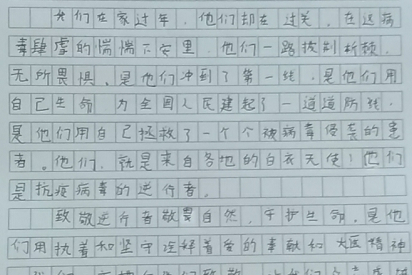 我们在家过年,他们却在过关,在这病
毒肆虐的惴惴不安里,他们一路披荆斩棘,
无所畏惧,是他们冲到了第一线,是他们用
自己生命为全国人民建起了一道道防线,
是他们用自己拯救了一个个被病毒侵袭的患
者。他们,就是来自各地的白衣天使!他们
是抗疫病毒的逆行者。
致敬逆行者敬畏自然,守护生命,是他
们用执着和坚守诠释着爱的奉献和大医精神